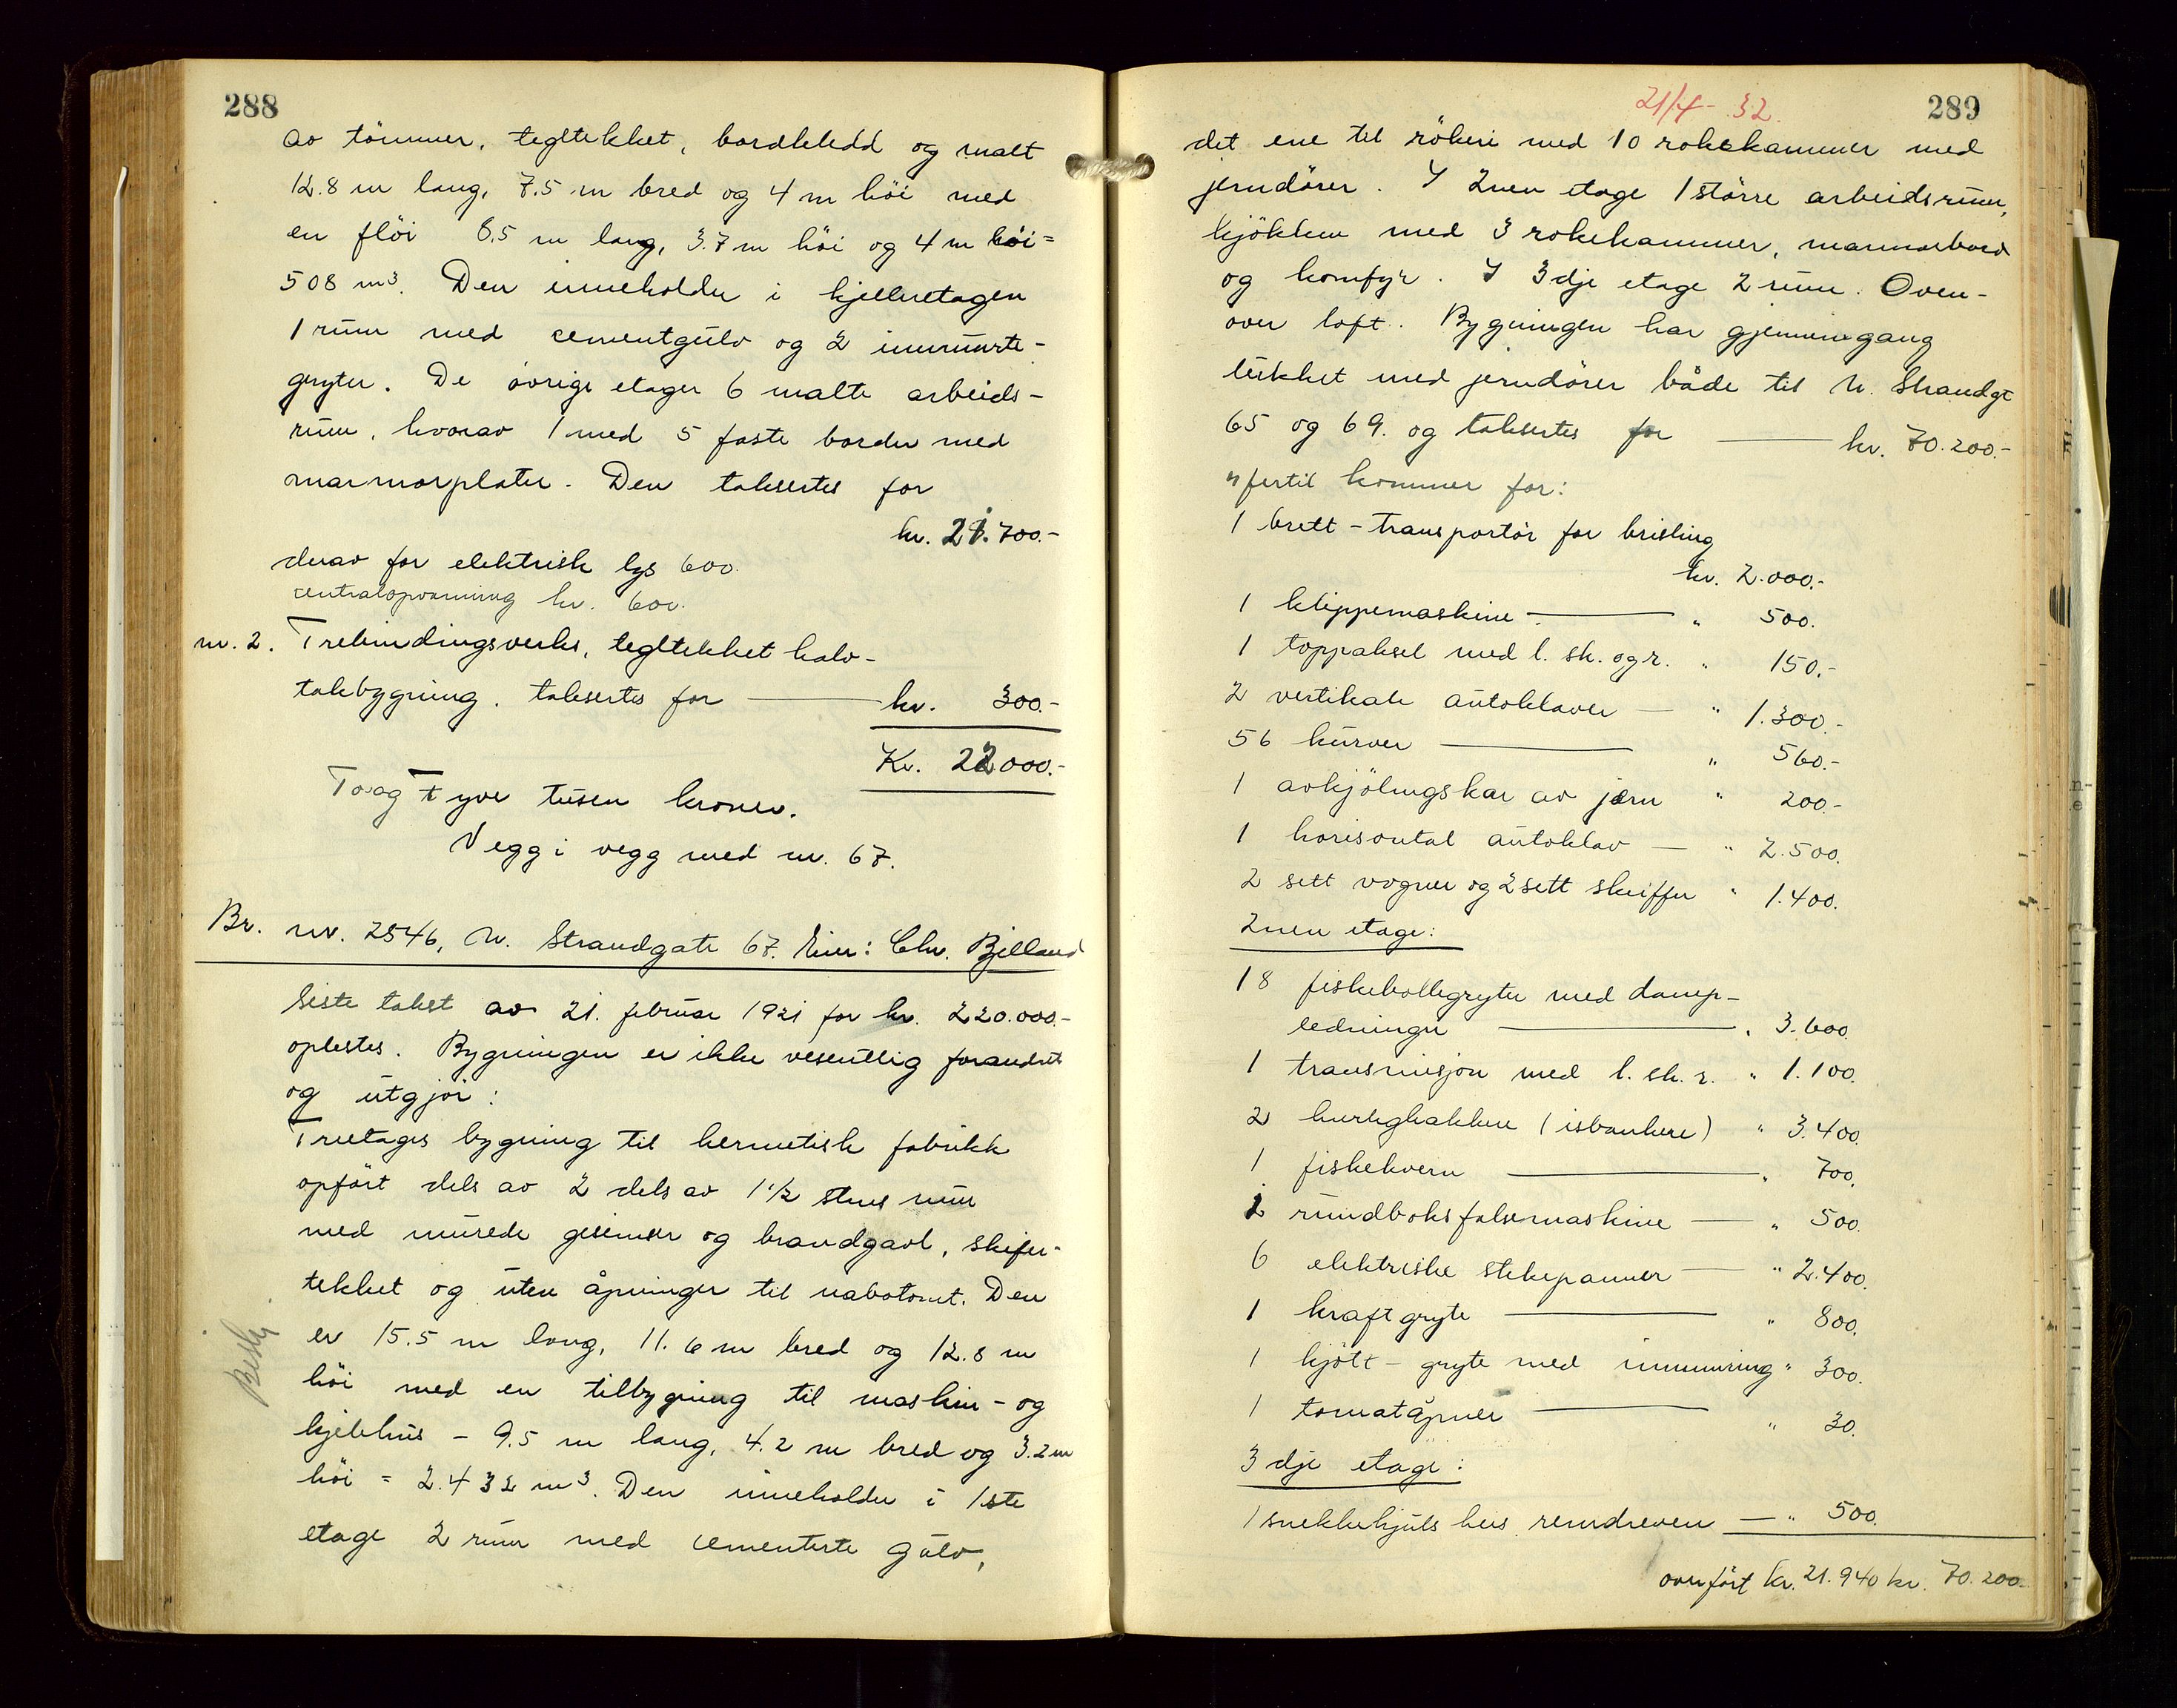 288
av tömmer, tegltekket, bordkledd og malt
12.8 m lang, 7.5 m bred og 4 m höi med
en flöi 8.5 m lang, 3.7 m höi og 4 m höi =
508 m³. Den inneholder i kjelleretagen
1 rum med cementgulv og 2 innmurte-
gryter. De övrige etager 6 malte arbeids-
rum, hvorav 1 med 5 faste border med
marmorplater. Den taksertes for
kr. 21.700.-
derav for elektrisk lys 600.
centralopvarming kr. 600.
nr. 2. Trebindingsverks, tegltekket halv-
takbygning. taksertes for — kr. 300.-
Kr. 22.000.-
To og Tyve tusen kroner.
Vegg i vegg med nr. 67.
Br. nr. 2546, N. Strandgate 67. Eier: Chr. Bjelland
Siste takst av 21. februar 1921 for kr. 220.000.-
oplestes. Bygningen er ikke vesentlig forandret
og utgjör:
Treetages bygning til hermetisk fabrikk
opfört dels av 2 dels av 1½ stens mur
med murede gesimser og brandgavl, skifer-
tekket og uten åpninger til nabotomt. Den
er 15.5 m lang, 11.6 m bred og 12.8 m
höi med en tilbygning til maskin- og
kjelehus - 9.5 m lang, 4.2 m bred og 3.2 m
höi = 2.432 m³. Den inneholder i 1ste
etage 2 rum med cementerte gulv,
21/4 - 32.
289
det ene til rökeri med 10 rokekammer med
jerndörer. I 2nen etage 1 större arbeidsrum,
kjökken med 3 rokekammer, marmorbord
og komfyr. I 3dje etage 2 rum. Oven-
over loft. Bygningen har gjennemgang
lukket med jerndörer både til N. Strandgt
65 og 69. og taksertes for — kr. 70.200.-
Hertil kommer for:
1 brett-transportör for brisling
kr. 2.000.-
1 klippemaskine — " 500.
1 toppaksel med l. sk. og r. " 150.-
2 vertikale autoklaver — " 1.300.-
56 kurver — " 560.-
1 avkjölingskar av jern " 200.-
1 horisontal autoklav — " 2.500.
2 sett vogner og 2 sett skuffer " 1.400.
2nen etage:
18 fiskebollegryter med damp-
ledninger — " 3.600.
1 transmisjon med l. sk. r. " 1.100.
2 hurtighakkere (isbankere) " 3.400.
1 fiskekvern — " 700.
1 rundboks falsemaskine — " 500.
6 elektriske stekepanner — " 2.400.
1 kraftgryte — " 800.
1 kjött-gryte med innmuring " 300.
1 tomatåpner — " 30.
3dje etage:
1 snekkehjuls heis remdreven — " 500.
overfört kr. 21.940 kr. 70.200.-